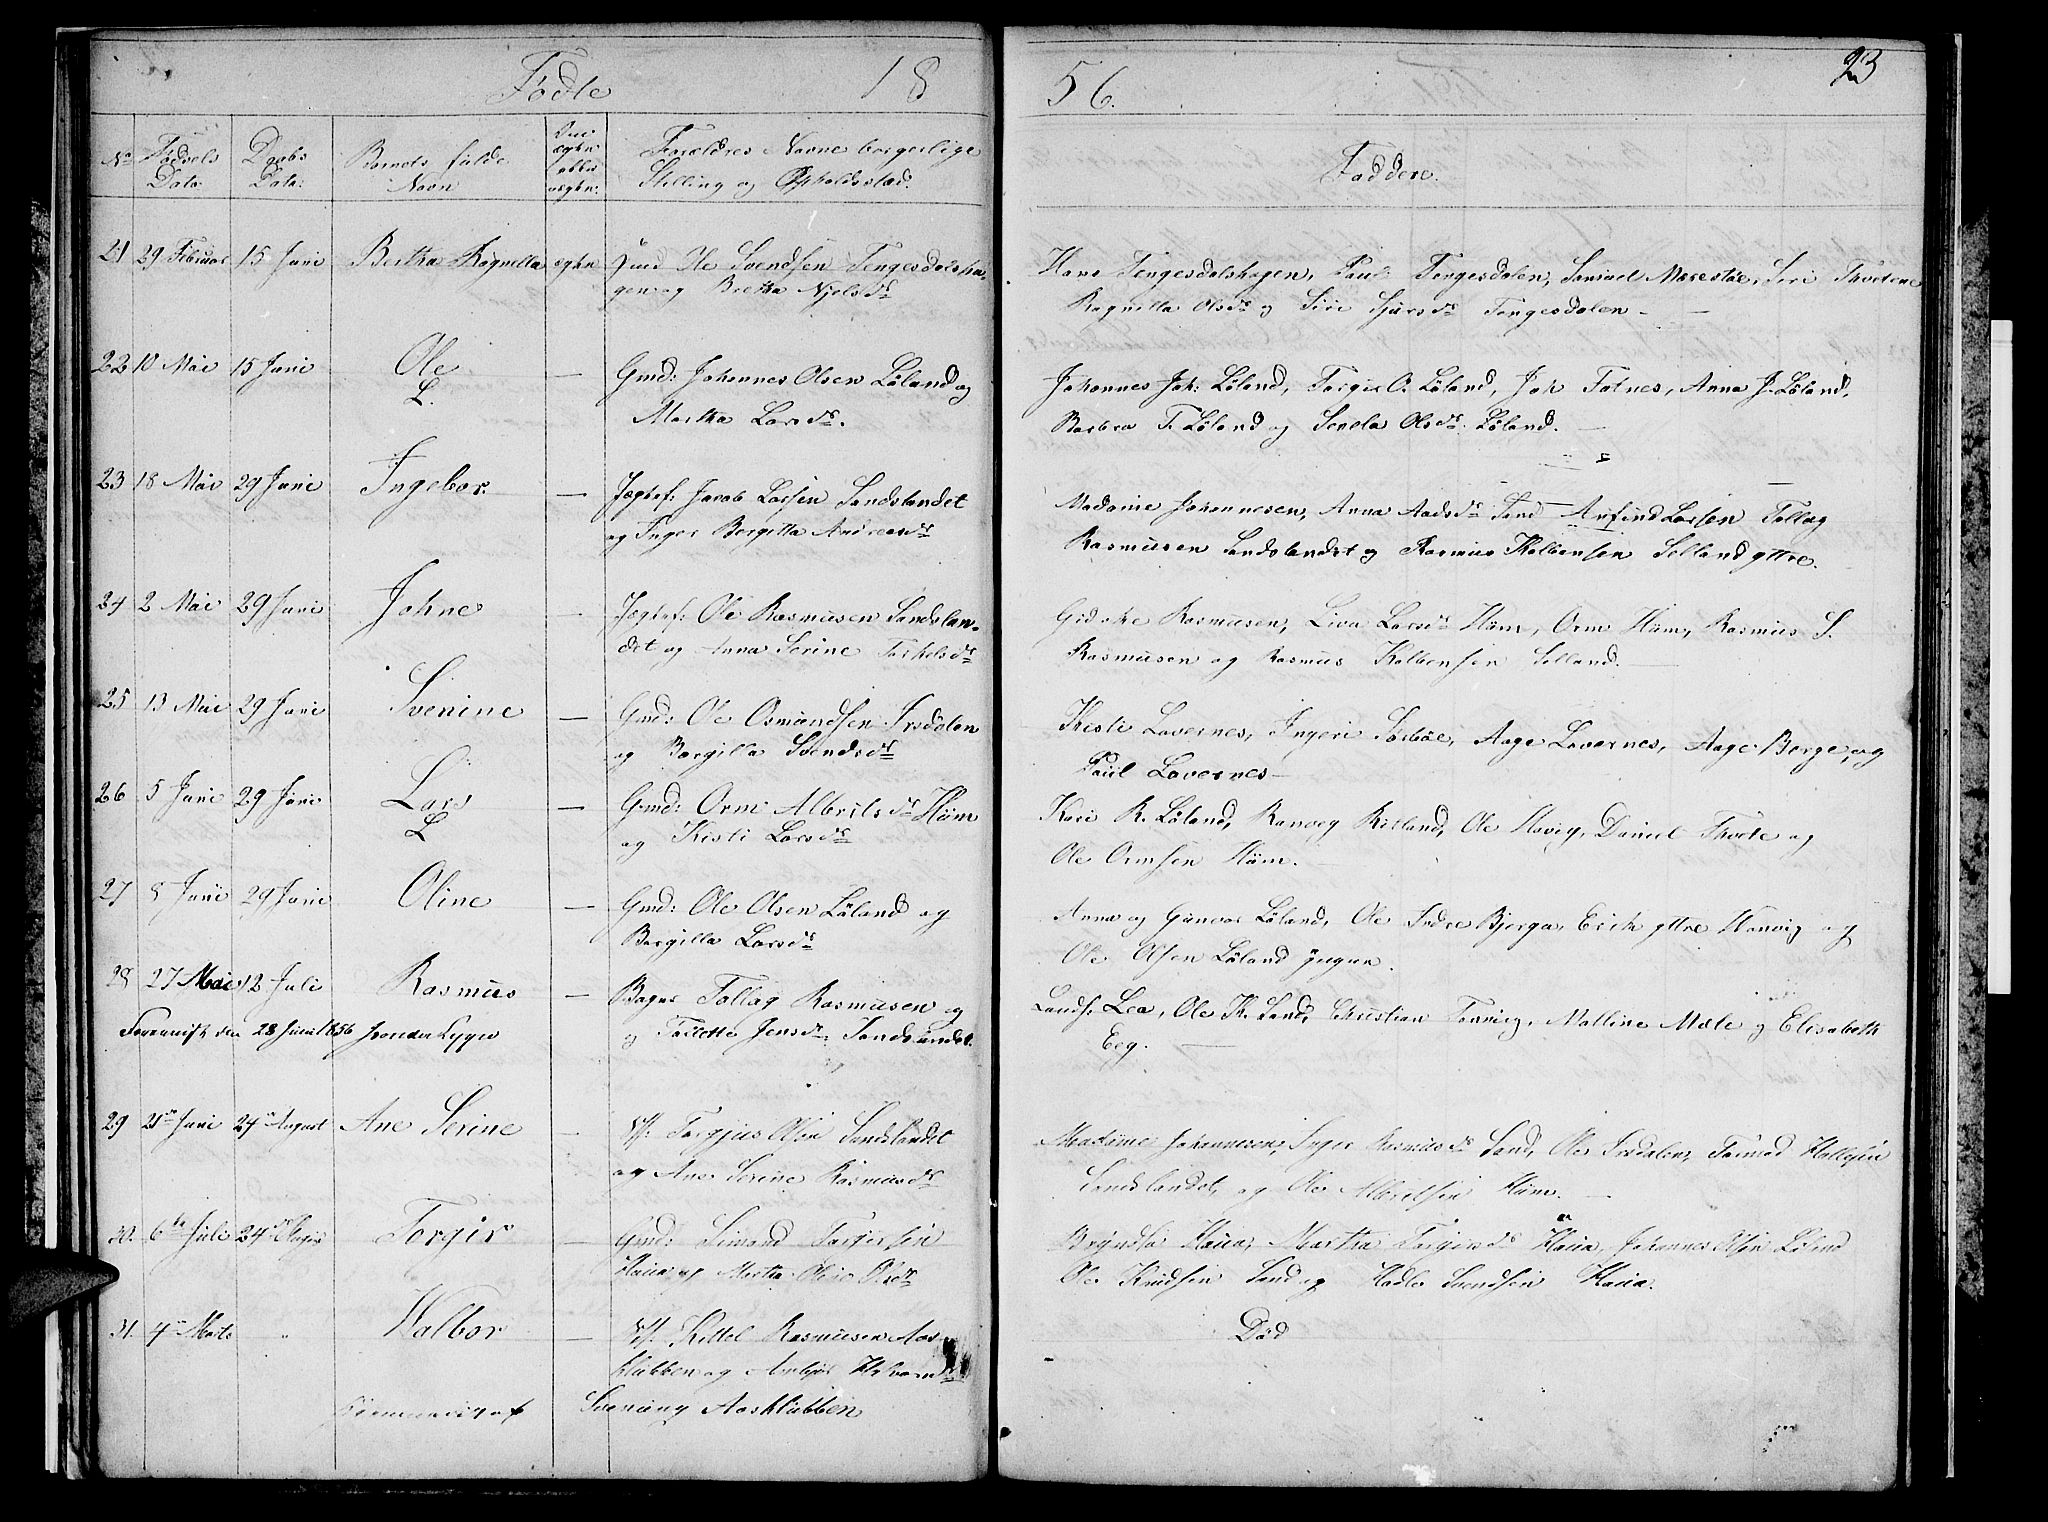 Födte 18
56. 23
No Fødsels Data: Daabs Data: Barnets fulde Navn Om ægte eller uægte: Forældres Navne borgerlige Stilling og Opholdsstæd. Faddere.
21 29 Februar 15 Juni Bertha Ragnella ægte Ole Svendsen Tengesdalsha-
gen og Bertha Njelsdr
Hans Tengesdalshagen, Paul Tengesdalen, Samuel Marestøe, Siri Thvetene
Ragnella Olsdr og Siri Sjursdr Tengesdalen
22 10 Mai 15 Juni Ole — Gmd: Johannes Olsen Løland og
L. Martha Larsdr.
Johannes Joh: Løland, Torgir O: Løland, Joh Totnes, Anna J. Løland,
Barbra T. Løland og Olsdr: Løland.
23 18 Mai 29 Juni Ingebor. — Jacob Larsen Sandslandet
og Inger Bergitta Andreasdr
Madame Johannesen, Anna Aadsdr Sand Arfind Larsen Tollag
Rasmusen Sandslandet og Rasmus Kolbensen Selland yttre.
24 2 Mai 29 Juni Johne — Ole Rasmusen Sandslan-
det og Anna Serine Torkelsdr
Rasmusen, Liva Larsdr Hüm, Orm Hüm, Rasmus S.
Rasmusen og Rasmus Kolbensen Selland.
25 13 Mai 29 Juni Svenine — Gmd: Ole Osmundsen Irsdalen
og Borgilla Svendsdr
Kristi Lovernes, Ingeri Sørbøe, Aage Lovernes, Aage Berge, og
Paul Lovernes
26 5 Juni 29 Juni Lars — Gmd: Orm Albritsdr Hüm
L og Kristi Larsdr
Kari R. Løland, Ranveg Ritland, Ole Havig, Daniel Thvete og
Ole Ormsen Hüm.
27 8 Juni 29 Juni Oline — Gmd: Ole Olsen Løland og
Borgilla Larsdr
Anna og Gunvor Løland, Ole Indre Bjerga, Erik yttre Hanvig og
Ole Olsen Løland yngre.
28 27 Mai 12 Juli Rasmus — Bager Tollag Rasmusen og
den 28 Juni 1856 og Tollette Jensdr Sandslandet.
Lea, Ole K. Sand, Christian Tonning, Malline Mæle og Elisabeth
Eeg.
29 21 Juni 24 August Ane Serine — Torgjus Olsen Sandslandet
og Ane Serine Rasmusdr
Madame Johannesen, Inger Rasmusdr Sand, Ole Irsdalen, Tormod Hallesen
Sandslandet, og Ole Albretsen Hüm.
30. 6te Juli 24 Torgir — Gmd: Simond Torgersen
Haua og Martha Olsdr
Haua, Martha Torgirsdr Haua, Johannes Olsen Løland
Ole Knudsen Sand og Hadle Svendsen Haua.
31. 4 Marts " Walbor — Kittel Rasmusen Aas-
klubben og
Død
Aasklubben